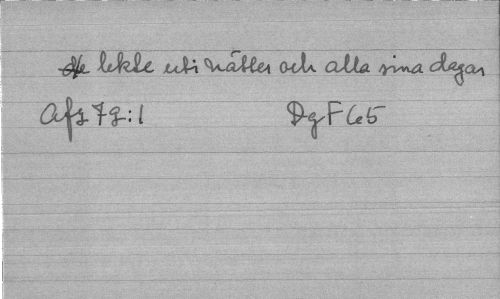 de lekte uti nätter och alla sina dagar
Afz 79:1 DgF 65